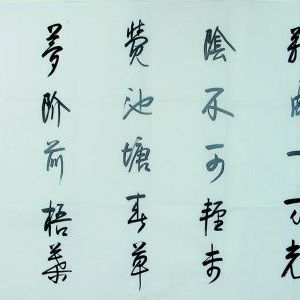 難成一寸光
陰不可輕未
覺池塘春草
夢阶前梧葉